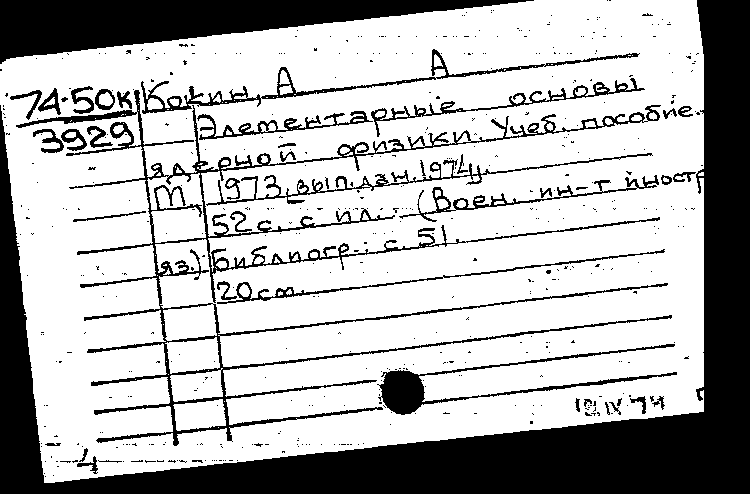 74-50к Кокин, А А
3929 Элементарные основы
ядерной физики. Учеб. пособие.
М., 1973, вып. дан. 1974.
52 с. с ил. (Воен. ин-т иностр
яз.) Библиогр.: с. 51.
20 см.
12 IX 74
4